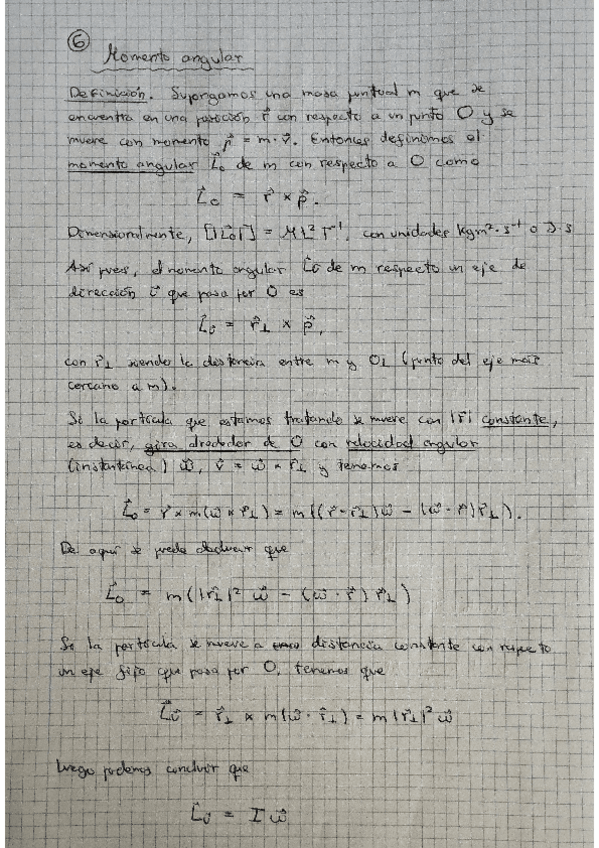 ⑥
Momento angular
Definición. Supongamos una masa puntual m que se
encuentra en una posición r⃗ con respecto a un punto O y se
mueve con momento p⃗ = m·v⃗. Entonces definimos el
momento angular L⃗₀ de m con respecto a O como
L⃗₀ = r⃗ × p⃗.
Dimensionalmente, [|L⃗₀|] = M L² T⁻¹, con unidades kg m²·s⁻¹ o J·s
Así pues, el momento angular L⃗ᵤ de m respecto un eje de
dirección u⃗ que pasa por O es
L⃗ᵤ = r⃗⊥ × p⃗,
con r⃗⊥ siendo la distancia entre m y O⊥ (punto del eje más
cercano a m).
Si la partícula que estamos tratando se mueve con |r⃗| constante,
es decir, gira alrededor de O con velocidad angular
(instantánea) ω⃗, v⃗ = ω⃗ × r⃗⊥ y tenemos
L⃗₀ = r⃗ × m(ω⃗ × r⃗⊥) = m((r⃗·r⃗⊥)ω⃗ − (ω⃗·r⃗)r⃗⊥).
De aquí se puede observar que
L⃗₀ = m(|r⃗⊥|² ω⃗ − (ω⃗·r⃗) r⃗⊥)
Si la partícula se mueve a distancia constante con respecto
un eje fijo que pasa por O, tenemos que
L⃗ᵤ = r⃗⊥ × m(ω⃗ · r⃗⊥) = m|r⃗⊥|² ω⃗
Luego podemos concluir que
L⃗ᵤ = I ω⃗